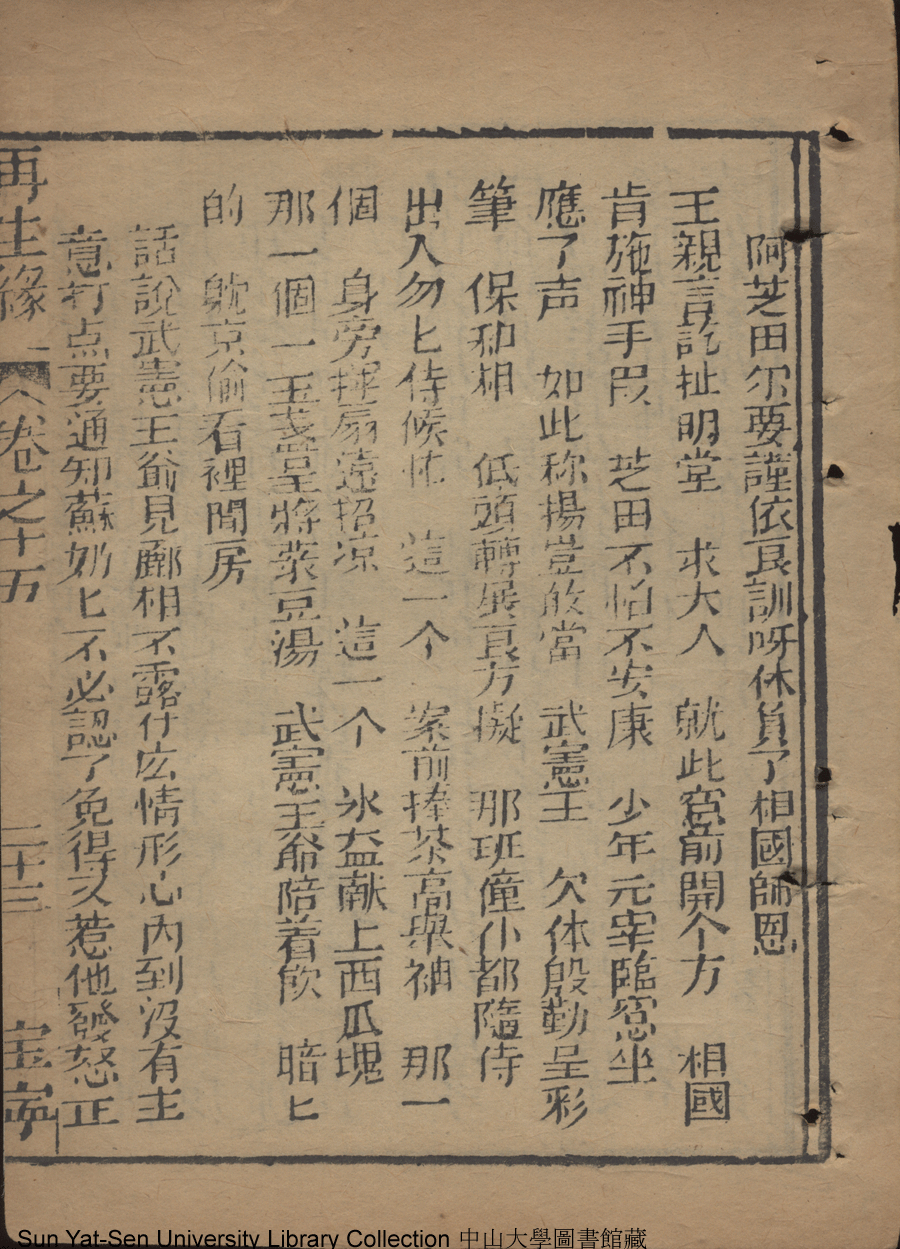 阿芝田尔要謹依良訓呀休負了相國師恩
王親言託扯明堂　求大人　就此窓前開个方　相國
肯施神手段　芝田不怕不安康　少年元宰臨窓坐
應了声　如此称揚豈敢當　武憲王　欠体殷勤呈彩
筆　保和相　低頭轉展良方擬　那班僮仆都隨侍
出入勿匕侍候忙　這一个　案前捧茶高與袖　那一
個　身旁揮扇遠招凉　這一个　氷益献上西瓜塊
那一個一玉盞呈將菉豆湯　武憲王爺陪着飲　暗匕
的　躭京偷看裡間房
話說武憲王爺見酈相不露什庅情形心內到沒有主
意打点要通知蘇奶匕不必認了免得又惹他發怒正
再生緣　卷之十五　二十三　宝寧
Sun Yat-Sen University Library Collection 中山大學圖書館藏